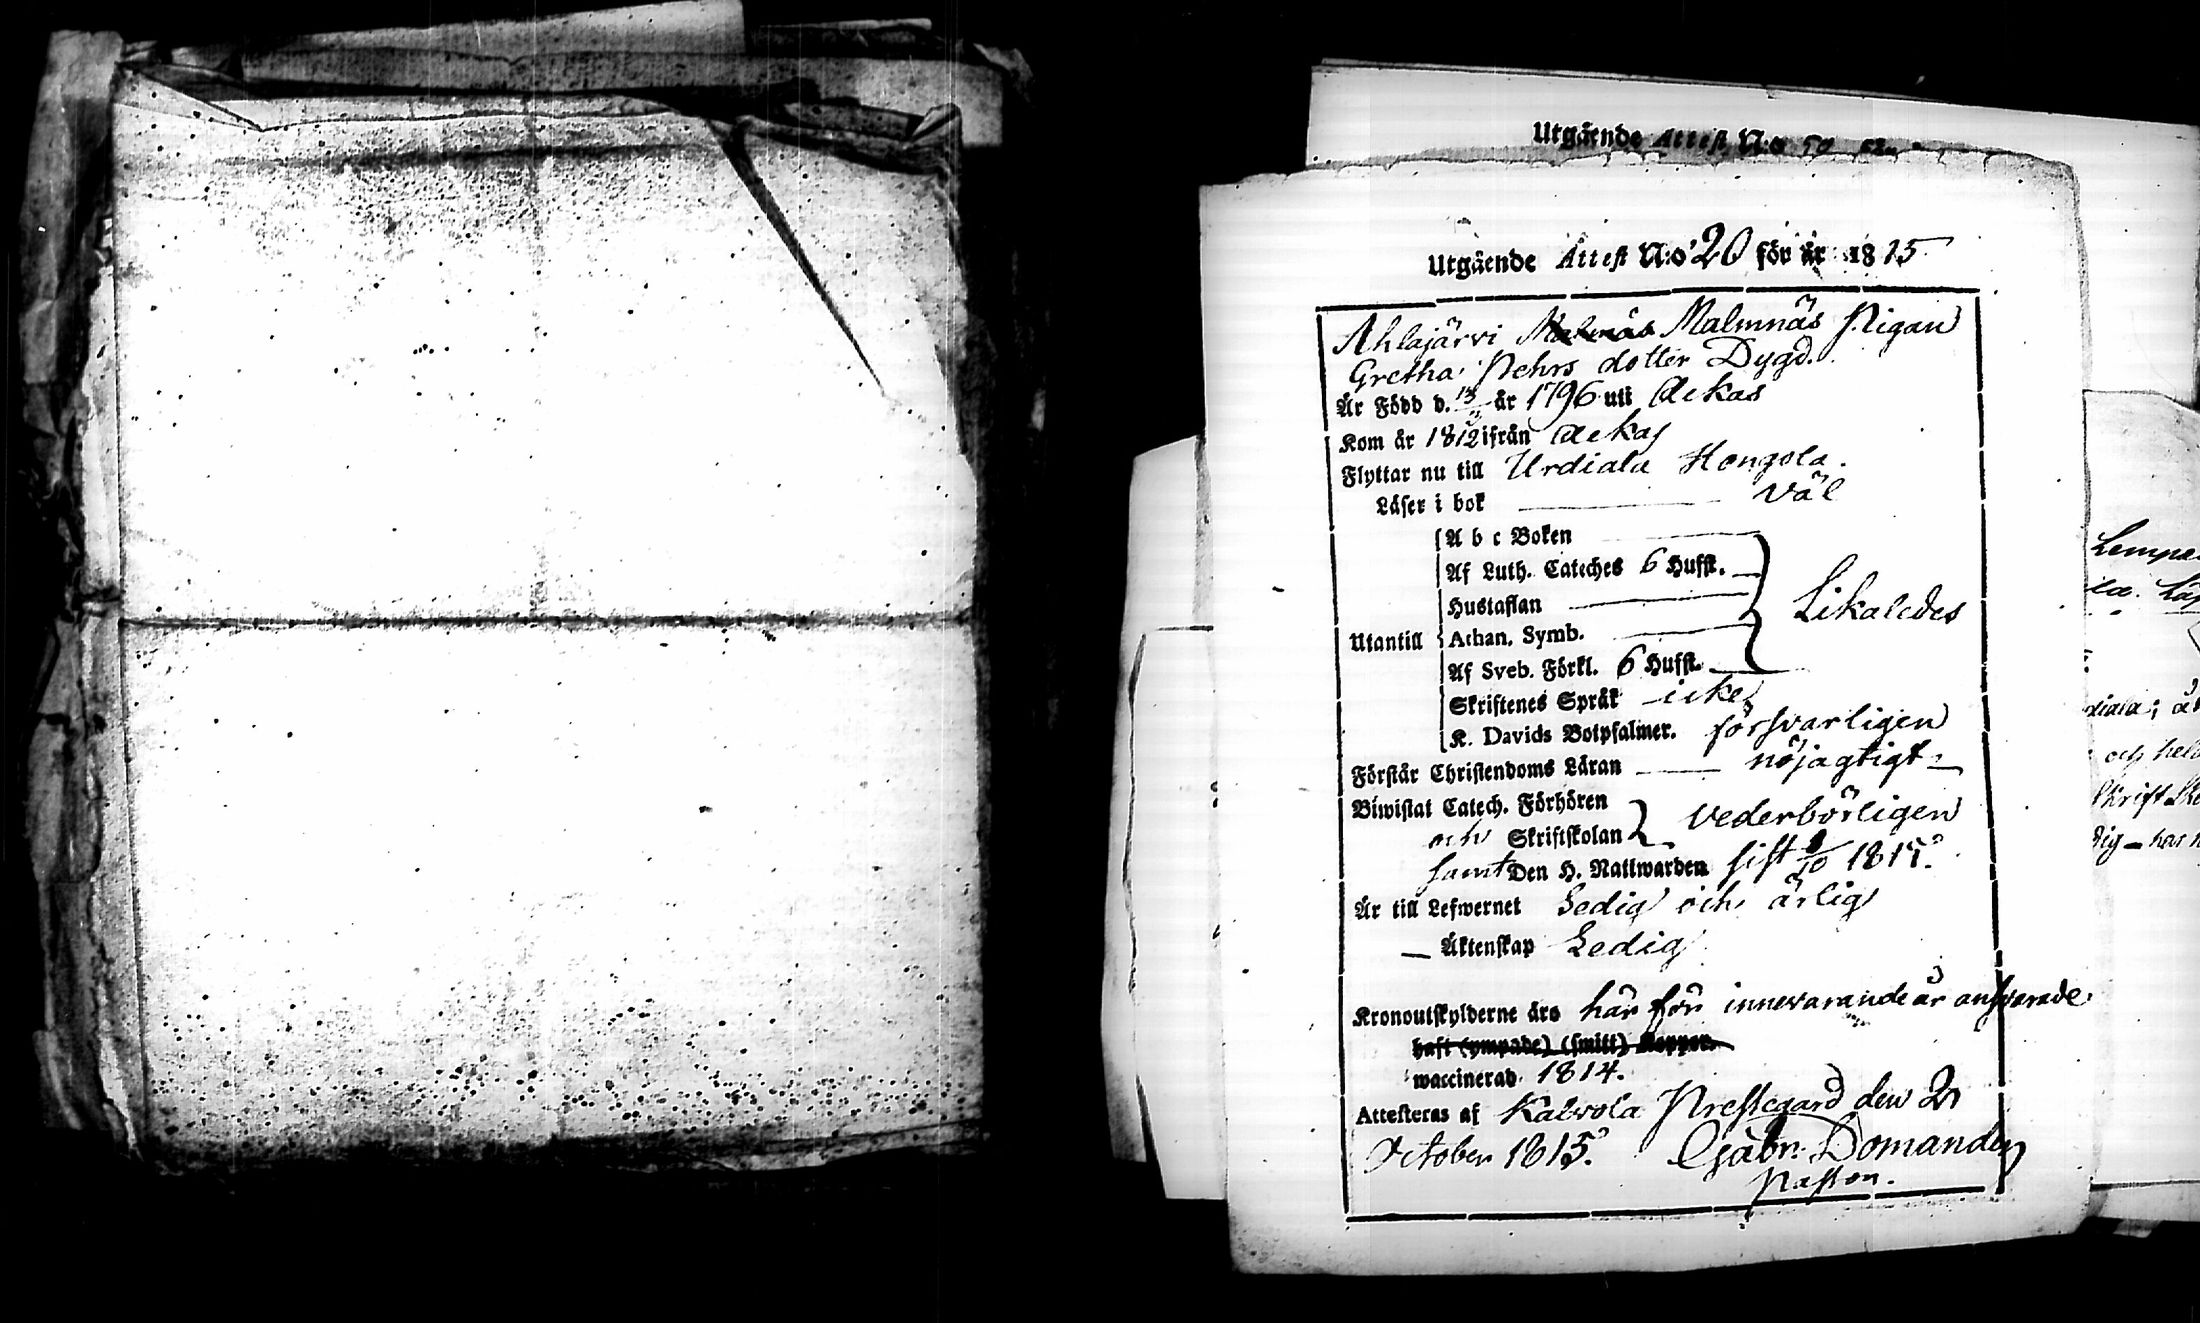 Utgående Attest N:o 50
Utgående Attest N:o 20 för år 1815
Ahlajärvi Malmnäs Malmnäs Pigan
Gretha Pehrs dotter Dygd.
Är Född d. 13 år 1796 uti Akas
Kom år 1812 ifrån Akas
Flyttar nu till Urdiala Hongola.
Läser i bok väl
A b c Boken
Af Luth. Cateches 6 Hufst.
Hustaflan
Likaledes
Utantill Athan. Symb.
Af Sveb. Förkl. 6 Hufst.
Skriftenes Språk icke
K. Davids Botpsalmer. försvarligen
Förstår Christendoms Läran nöjagtigt
Biwistat Catech. Förhören
och Skriftskolan vederbörligen
samt Den H. Nattwarden sist 1815.
Är till Lefwernet Sedig och ärlig
Äktenskap Ledig
Kronoutskylderne äro här för innevarande år ansvarade.
haft (ympade) (smitt) Koppor.
waccinerad 1814.
Attesteras af Kalvola Prestegård den 2
October 1815. Gabr. Domander
Pastor.
Lempä
diala;
och
Skrift
dig — har